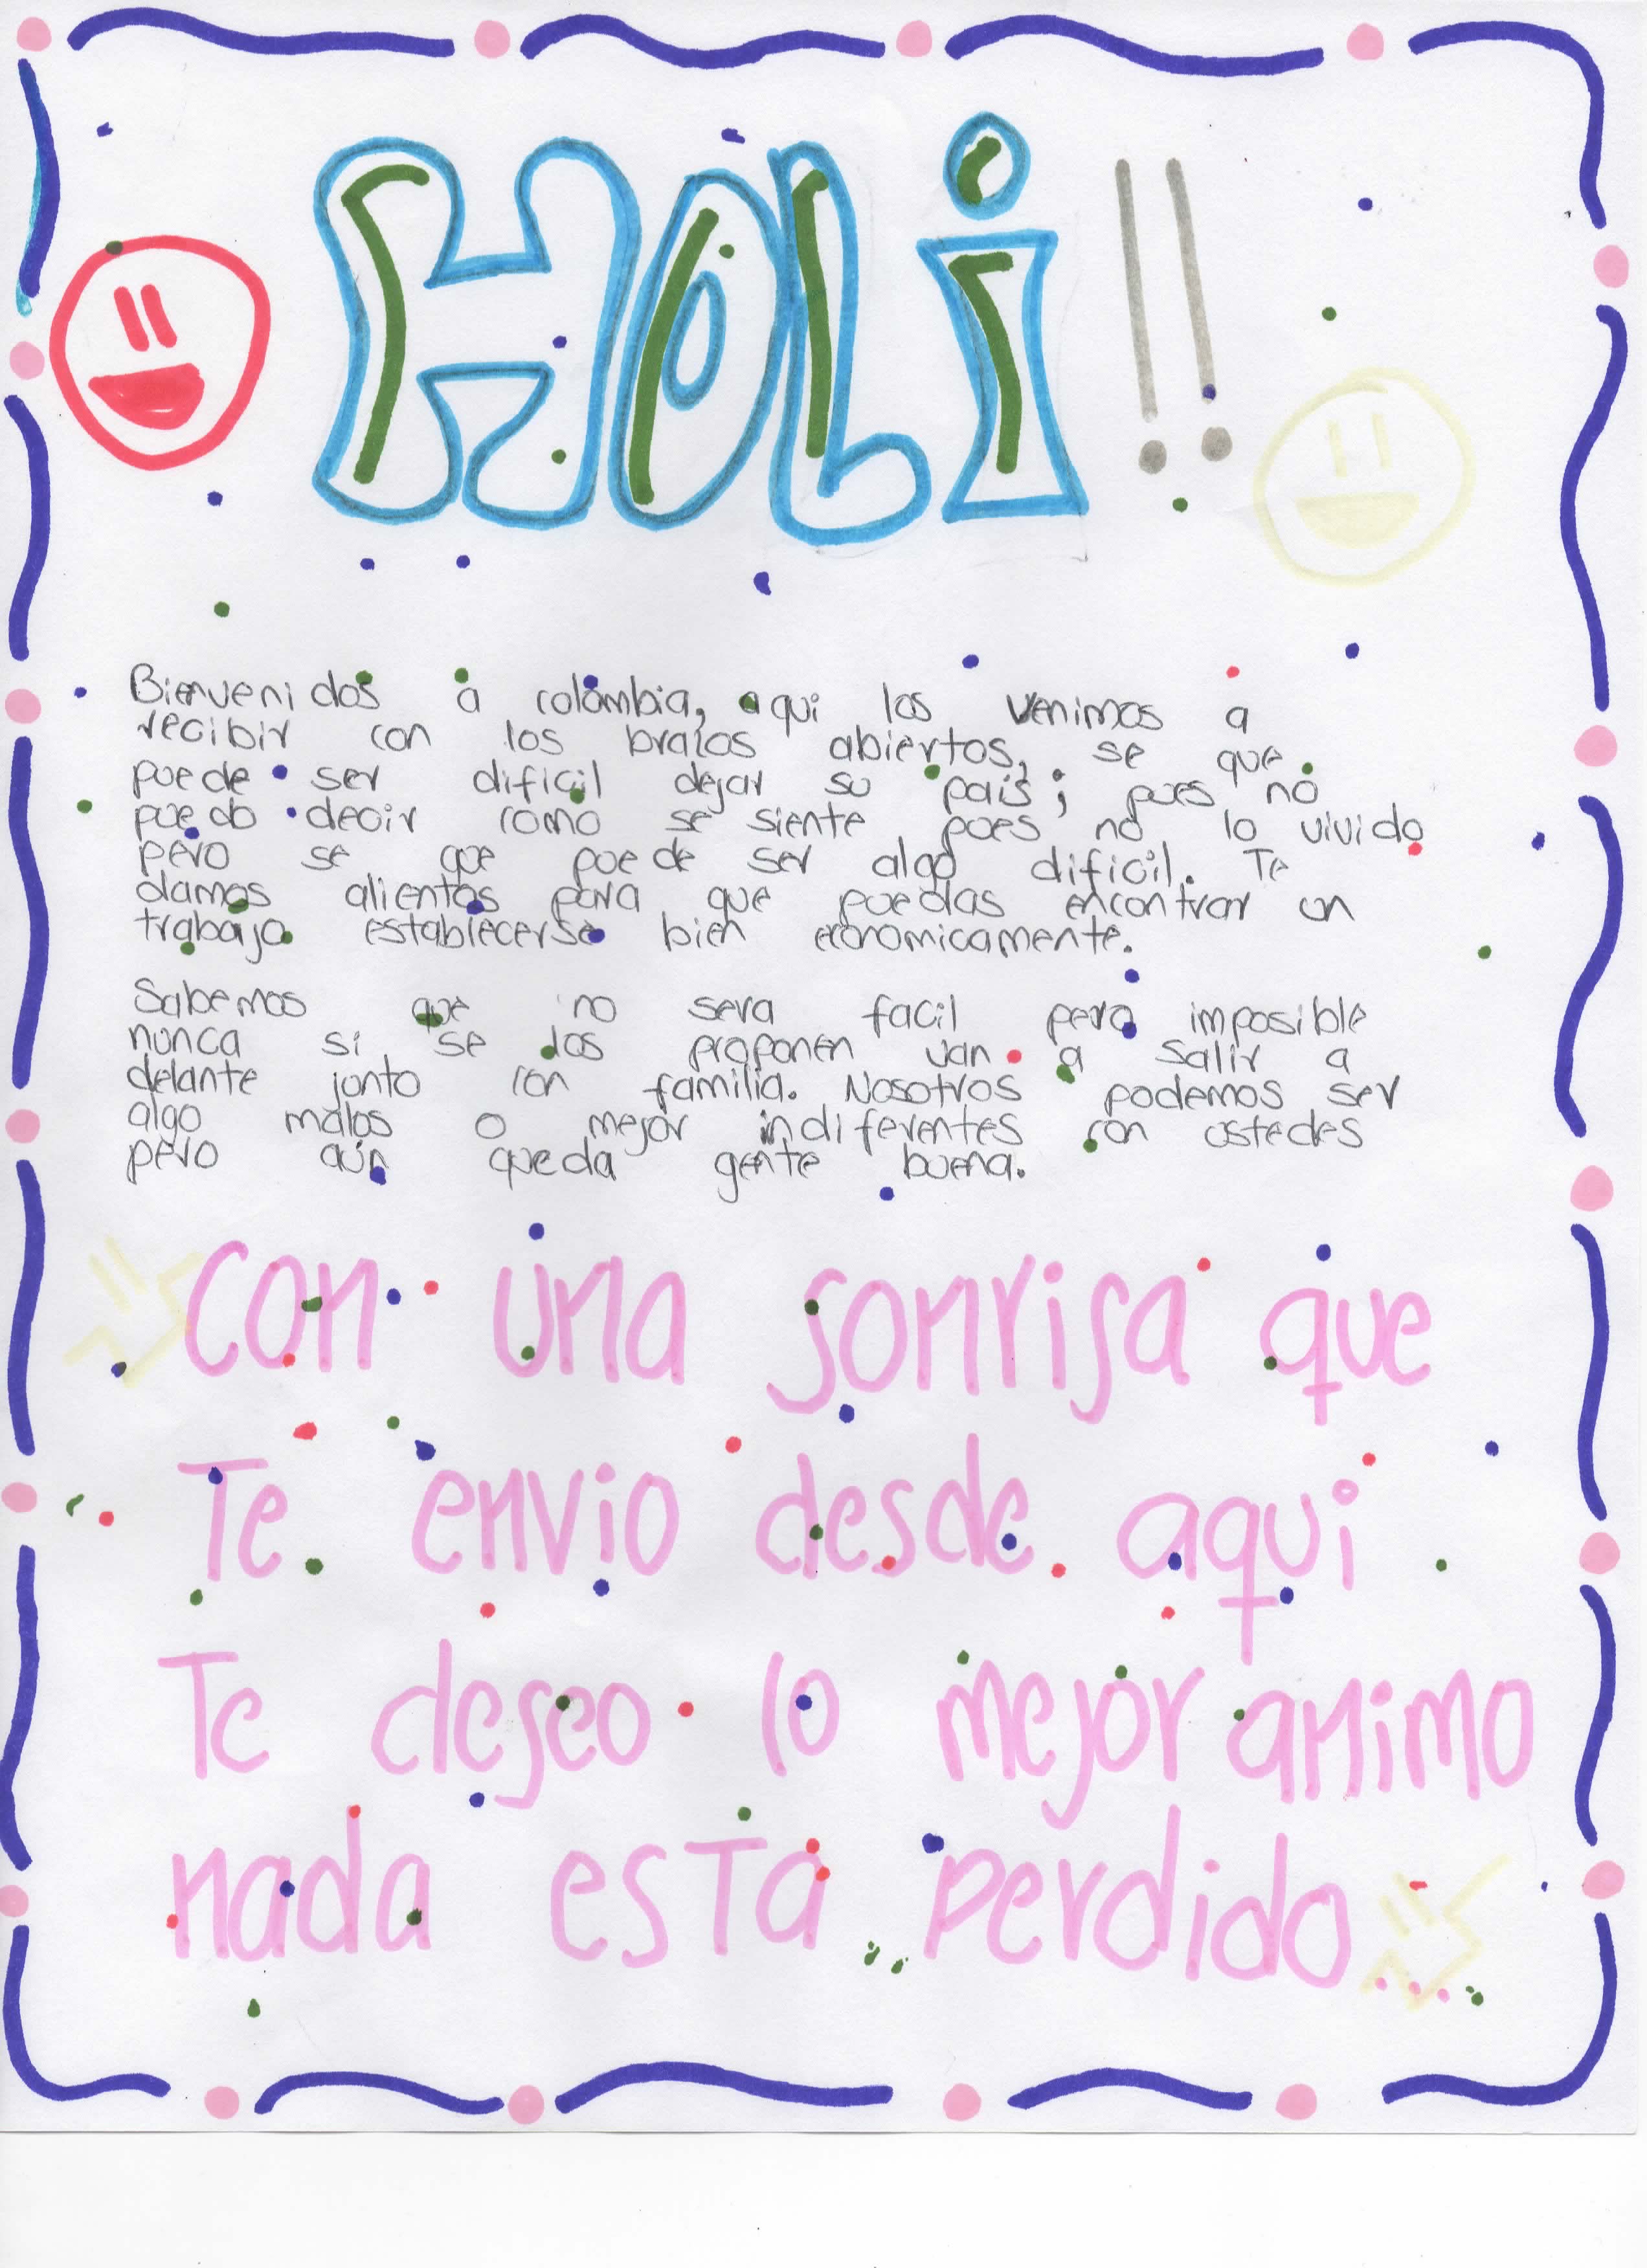 HOLi !!
Bienvenidos a colombia, aqui los venimos a
recibir con los brazos abiertos, se que
puede ser dificil dejar su país; pues no
puedo decir como se siente pues no lo vivido
pero se que puede ser algo dificil. Te
damos alientos para que puedas encontrar un
trabajo establecerse bien economicamente.
Sabemos que no sera facil pero imposible
nunca si se los proponen van a salir a
delante junto con familia. Nosotros podemos ser
algo malos o mejor indiferentes con ustedes
pero aún queda gente buena.
con una sonrisa que
Te envio desde aqui
Te deseo lo mejor animo
nada esta perdido...